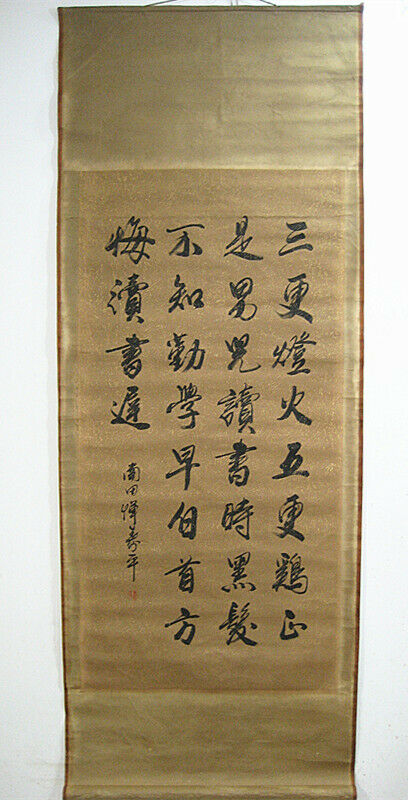 三更燈火五更鷄正
是男兒讀書時黑髮
不知勤學早白首方
悔讀書遲
南田惲壽平